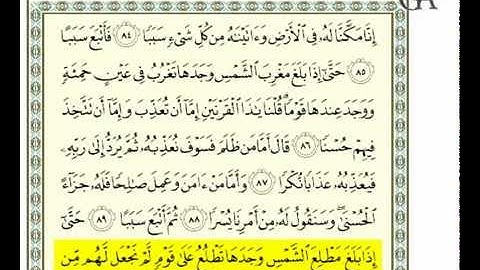 إِنَّا مَكَّنَّا لَهُۥ فِى ٱلْأَرْضِ وَءَاتَيْنَٰهُ مِن كُلِّ شَىْءٍ سَبَبًا ٨٤ فَأَتْبَعَ سَبَبًا
٨٥ حَتَّىٰٓ إِذَا بَلَغَ مَغْرِبَ ٱلشَّمْسِ وَجَدَهَا تَغْرُبُ فِى عَيْنٍ حَمِئَةٍ
وَوَجَدَ عِندَهَا قَوْمًا ۗ قُلْنَا يَٰذَا ٱلْقَرْنَيْنِ إِمَّآ أَن تُعَذِّبَ وَإِمَّآ أَن تَتَّخِذَ
فِيهِمْ حُسْنًا ٨٦ قَالَ أَمَّا مَن ظَلَمَ فَسَوْفَ نُعَذِّبُهُۥ ثُمَّ يُرَدُّ إِلَىٰ رَبِّهِۦ
فَيُعَذِّبُهُۥ عَذَابًا نُّكْرًا ٨٧ وَأَمَّا مَنْ ءَامَنَ وَعَمِلَ صَٰلِحًا فَلَهُۥ جَزَآءً
ٱلْحُسْنَىٰ ۖ وَسَنَقُولُ لَهُۥ مِنْ أَمْرِنَا يُسْرًا ٨٨ ثُمَّ أَتْبَعَ سَبَبًا ٨٩ حَتَّىٰٓ
إِذَا بَلَغَ مَطْلِعَ ٱلشَّمْسِ وَجَدَهَا تَطْلُعُ عَلَىٰ قَوْمٍ لَّمْ نَجْعَل لَّهُم مِّن